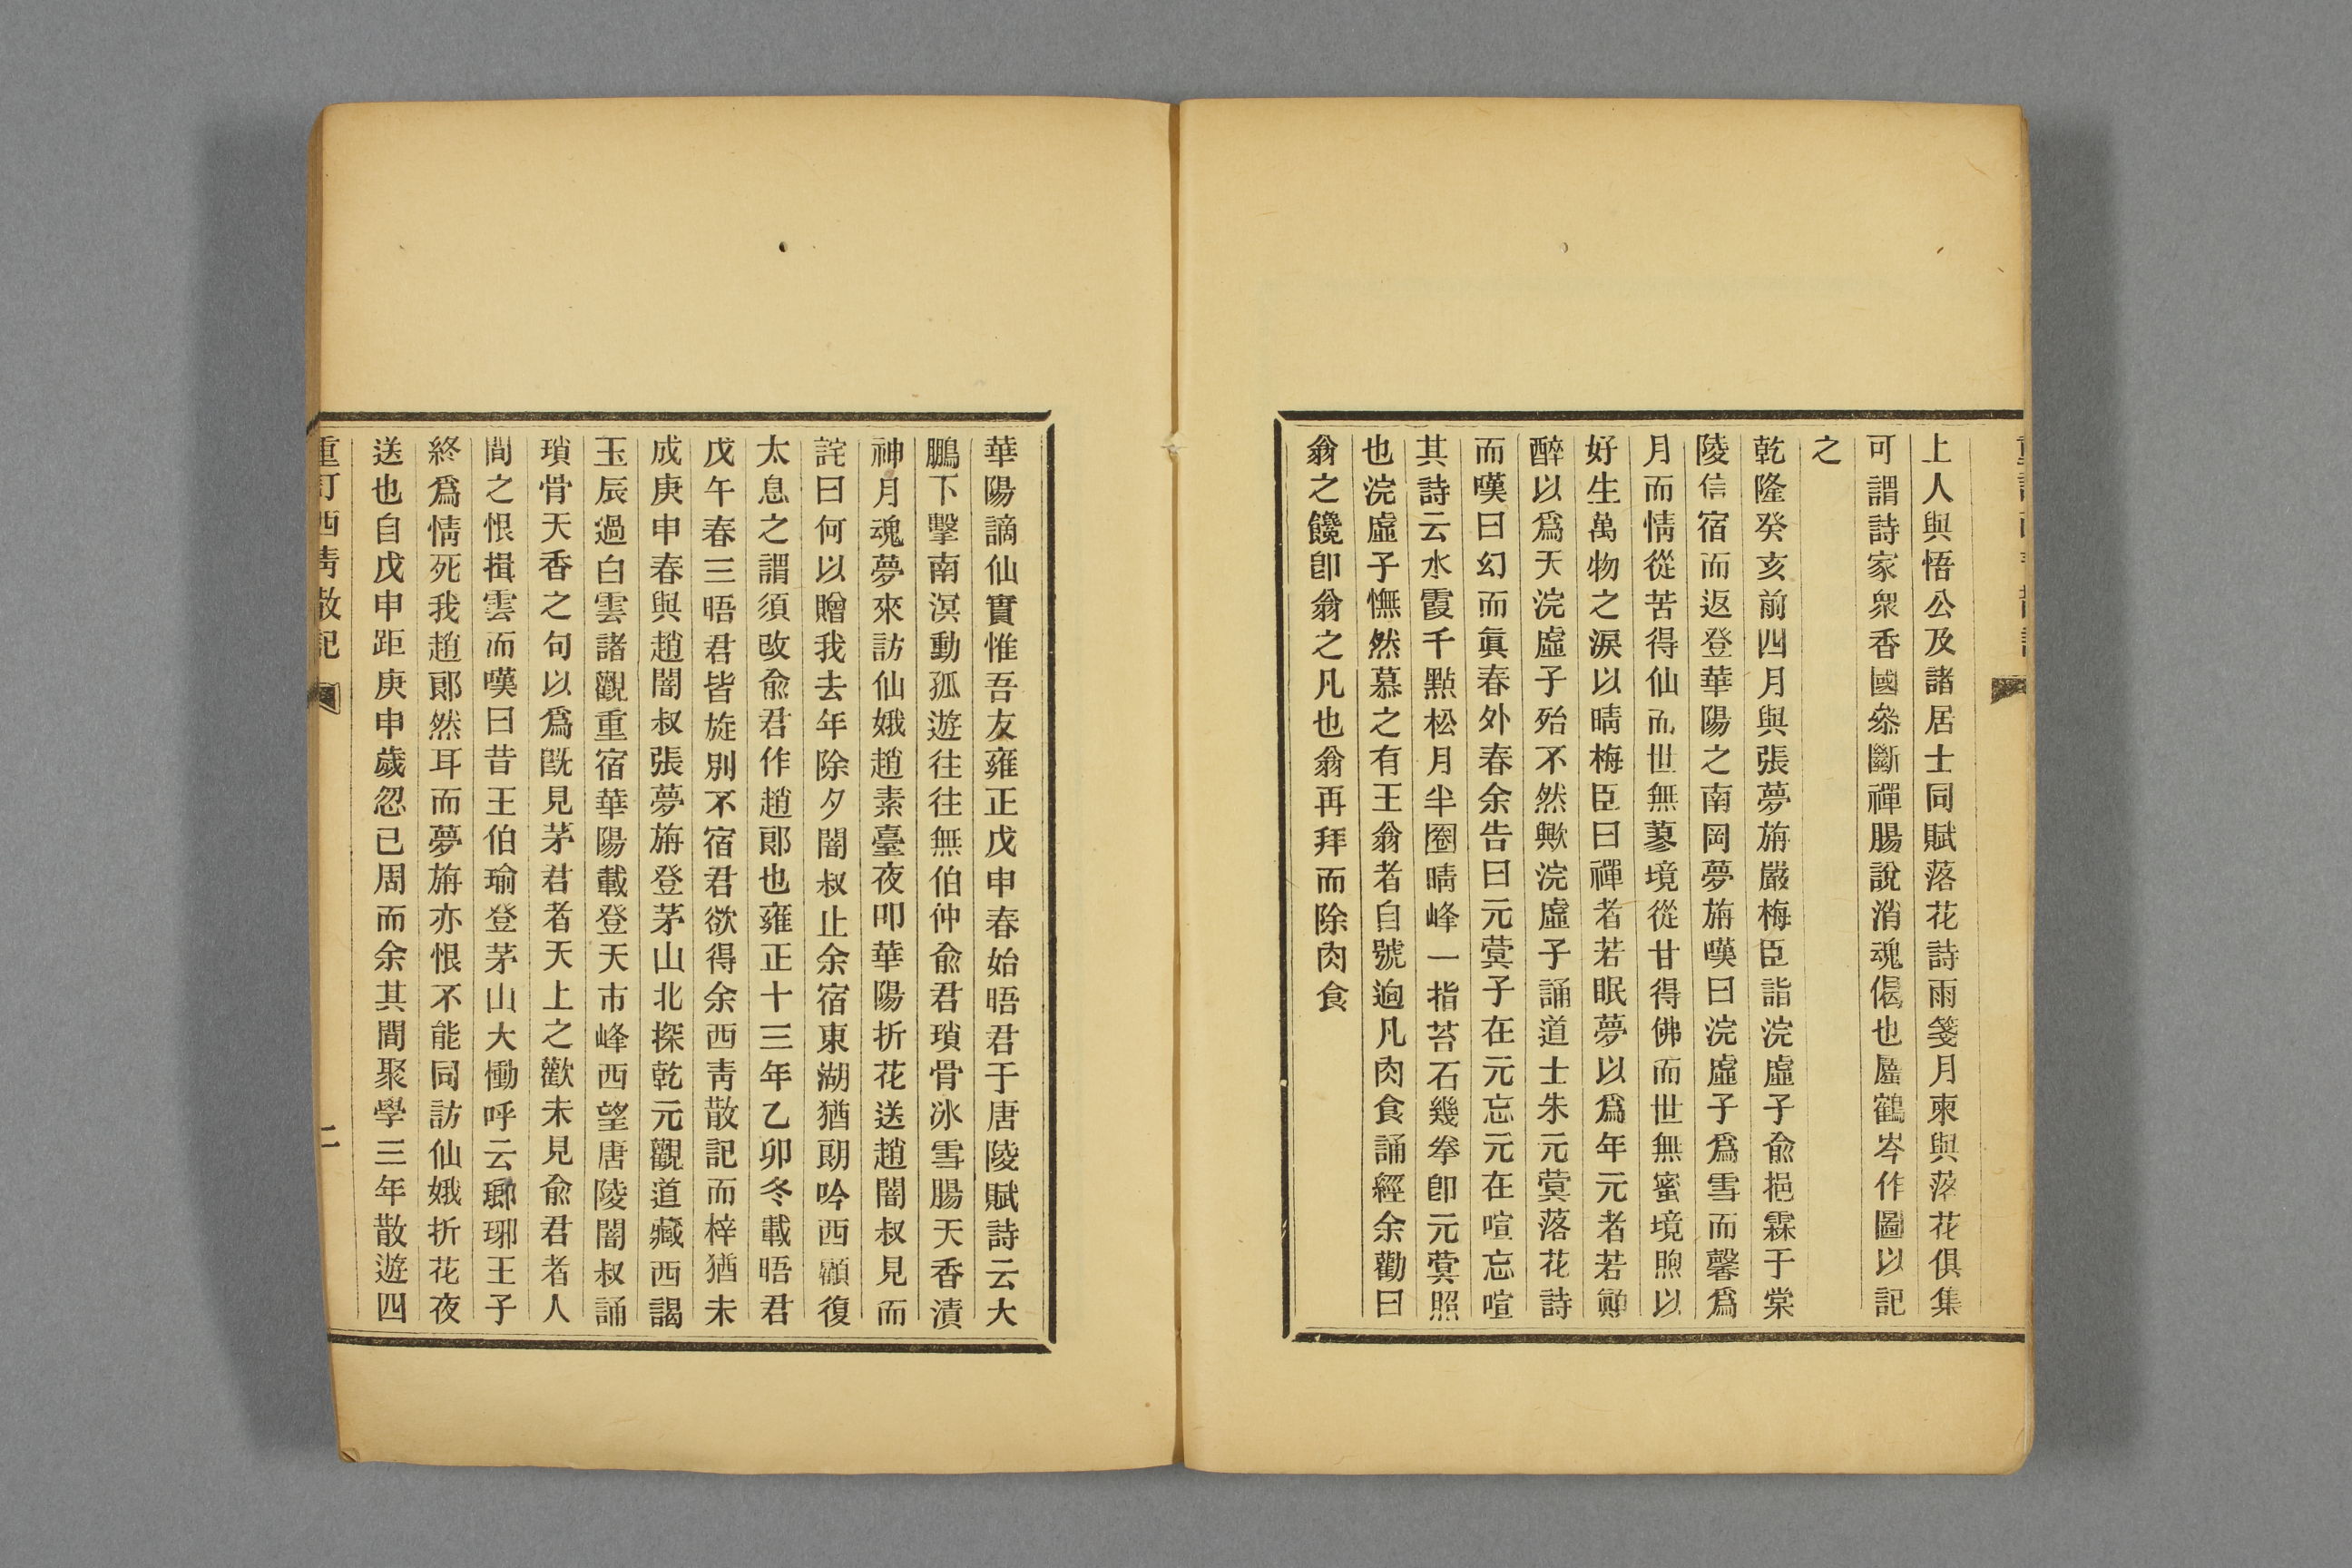 上人與悟公及諸居士同賦落花詩雨箋月柬與落花俱集
可謂詩家衆香國叅斷禪腸說消魂偈也屬鶴岑作圖以記
之
乾隆癸亥前四月與張夢旃嚴梅臣詣浣虛子兪挹霖于棠
陵信宿而返登華陽之南岡夢旃嘆曰浣虛子爲雪而馨爲
月而情從苦得仙而世無蓼境從甘得佛而世無蜜境煦以
好生萬物之淚以晴梅臣曰禪者若眠夢以爲年元者若
醉以爲天浣虛子殆不然歟浣虛子誦道士朱元蓂落花詩
而嘆曰幻而眞春外春余告曰元蓂子在元忘元在喧忘喧
其詩云水霞千點松月半圈晴峰一指苔石幾拳卽元蓂照
也浣虛子憮然慕之有王翁者自號逈凡肉食誦經余勸曰
翁之饞卽翁之凡也翁再拜而除肉食
華陽謫仙實惟吾友雍正戊申春始晤君于唐陵賦詩云大
鵬下擊南溟動孤遊往往無伯仲兪君瑣骨冰雪腸天香漬
神月魂夢來訪仙娥趙素臺夜叩華陽折花送趙闇叔見而
詫曰何以贈我去年除夕闇叔止余宿東湖猶朗吟西顧復
太息之謂須改兪君作趙郞也雍正十三年乙卯冬載晤君
戊午春三晤君皆旋別不宿君欲得余西靑散記而梓猶未
成庚申春與趙闇叔張夢旃登茅山北探乾元觀道藏西謁
玉辰過白雲諸觀重宿華陽載登天市峰西望唐陵闇叔誦
瑣骨天香之句以爲旣見茅君者天上之歡未見兪君者人
間之恨揖雲而嘆曰昔王伯瑜登茅山大慟呼云瑯琊王子
終爲情死我趙郞然耳而夢旃亦恨不能同訪仙娥折花夜
送也自戊申距庚申歲忽已周而余其間聚學三年散遊四
重訂西靑散記
二